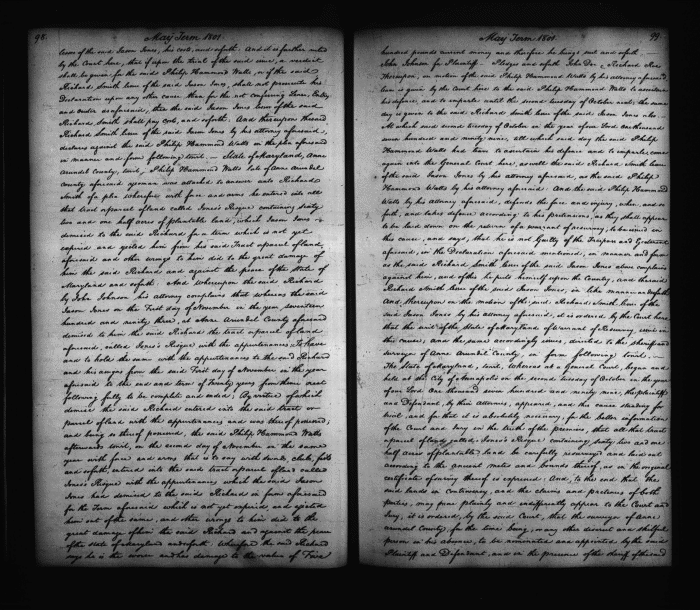 98. May Term 1801.
lessee of the said Jason Jones, his costs, and soforth. And it is further ruled
by the Court here, that if upon the trial of the said issue, a verdict
shall be given for the said Philip Hammond Watts, or if the said
Richard Smith lessee of the said Jason Jones, shall not prosecute his
Declaration upon any other cause than for the not confessing Lease, Entry,
and ouster aforesaid, then the said Jason Jones lessor of the said
Richard Smith shall pay costs, and soforth. And thereupon the said
Richard Smith lessee of the said Jason Jones by his attorney aforesaid,
declares against the said Philip Hammond Watts in the plea aforesaid
in manner and form following towit. State of Maryland, Anne
Arundel County, towit, Philip Hammond Watts late of Anne Arundel
County aforesaid yeoman was attached to answer unto Richard
Smith of a plea wherefore with force and arms he entered into all
that tract or parcel of land called Jones's Risque containing sixty
two and one half acres of plantable land, which Jason Jones
demised to the said Richard for a term which is not yet
expired and ejected him from his said Tract or parcel of land
aforesaid and other wrongs to him did to the great damage of
him the said Richard and against the peace of the State of
Maryland and soforth. And Whereupon the said Richard
by John Johnson his attorney complains that whereas the said
Jason Jones on the First day of November in the year seventeen
hundred and ninety three, at Anne Arundel County aforesaid
demised to him the said Richard the tract or parcel of land
aforesaid, called Jones's Risque with the appurtenances, To have
and to hold the same with the appurtenances to the said Richard
and his assigns from the said First day of November in the year
aforesaid to the end and term of Twenty years from thence next
following fully to be complete and ended; By virtue of which
demise the said Richard entered into the said tract or
parcel of land with the appurtenances and was thereof possessed;
and being so thereof possessed, the said Philip Hammond Watts
afterwards towit, on the second day of November in the same
year with force and arms that is to say with swords, clubs, fists
and soforth, entered into the said tract or parcel of land called
Jones's Risque with the appurtenances which the said Jason
Jones had demised to the said Richard in form aforesaid
for the Term aforesaid which is not yet expired, and ejected
him out of the same, and other wrongs to him did to the
great damage of him the said Richard and against the peace
of the state of Maryland and soforth. Wherefore the said Richard
says he is the worse and has damage to the value of Five
May Term 1801. 99.
hundred pounds current money and therefore he brings suit and soforth.
John Johnson for Plaintiff. Pledges and soforth John Doe & Richard Roe
Whereupon, on motion of the said Philip Hammond Watts by his attorney aforesaid
time is given by the Court here to the said Philip Hammond Watts to ascertain
his defence, and to imparle until the second tuesday of October next; the same
day is given to the said Richard Smith lessee of the said Jason Jones also.
At which said second tuesday of October in the year of our Lord one thousand
seven hundred and ninety nine, till which said day the said Philip
Hammond Watts had time to ascertain his defence and to imparle, came
again into the General Court here, as well the said Richard Smith lessee
of the said Jason Jones by his attorney aforesaid, as the said Philip
Hammond Watts by his attorney aforesaid. And the said Philip Hammond
Watts by his attorney aforesaid, defends the force and injury, when, and so
forth, and takes defence according to his pretensions, as they shall appear
to be laid down on the return of a warrant of resurvey, to be issued in
this cause, and says, that he is not Guilty of the Trespass and Ejectment
aforesaid, in the Declaration aforesaid mentioned, in manner and form
as the said Richard Smith lessee of the said Jason Jones above complains
against him, and of this he puts himself upon the County, and the said
Richard Smith lessee of the said Jason Jones, in like manner and soforth
And, thereupon on the motion of the said Richard Smith lessee of the
said Jason Jones by his attorney aforesaid, it is ordered, by the Court here
that the writ of the State of Maryland of Warrant of Resurvey, issue in
this cause; and the same accordingly issues, directed to the sheriff and
surveyor of Anne Arundel County, in form following towit.
The State of Maryland, towit, Whereas at a General Court, begun and
held at the City of Annapolis on the second Tuesday of October in the year
of our Lord One thousand seven hundred and ninety nine, the plaintiff
and Defendant, by their Attornies, appeared, and the cause standing for
trial, and for that it is absolutely necessary, for the better information
of the Court and Jury in the truth of the premises, that all that tract
or parcel of land, called, Jones's Risque containing sixty two and one
half acres of plantable land be carefully resurveyed and laid out
according to the ancient metes and bounds thereof, as in the original
certificate of survey thereof is expressed: And, to the end that the
said lands in controversy, and the claims and pretences of both
parties, may more plainly and indifferently appear to the Court and
Jury, it is ordered, by the said Court, that the surveyor of Anne
arundel County, for the time being, or any other discreet and skilful
person in his absence, to be nominated and appointed by the said
Plaintiff and Defendant, and in the presence of the sheriff of the said